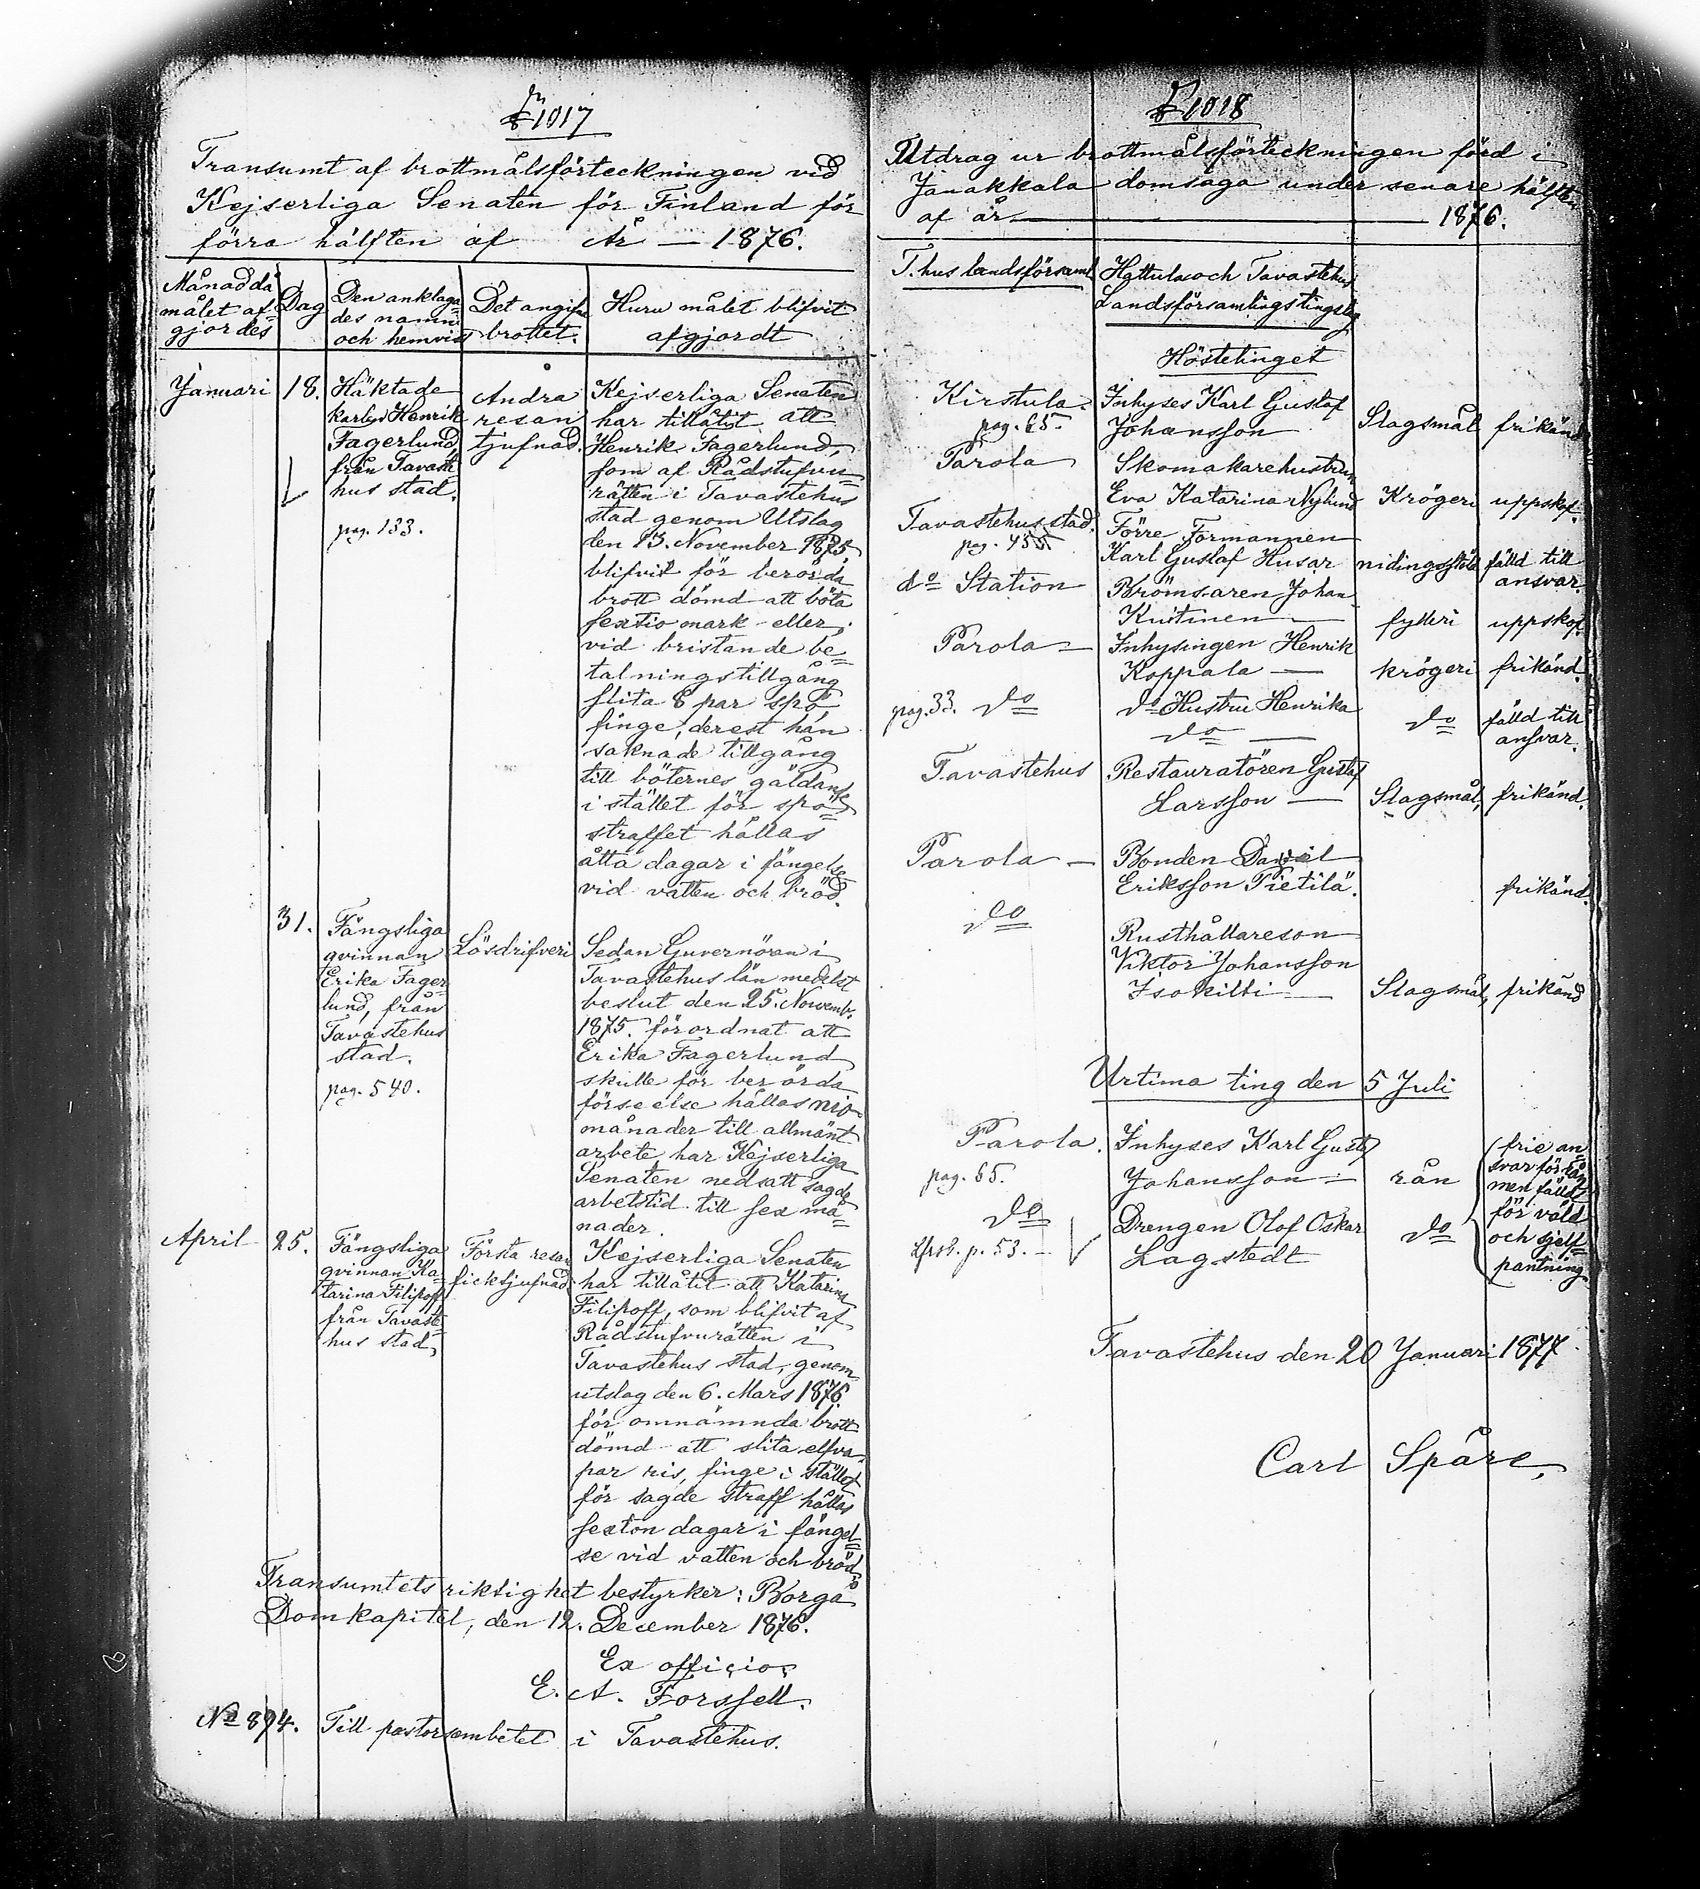 1017
Transumt af brottmålsförteckningen vid
Kejserliga Senaten för Finland för
förra hälften af År — 1876.
Månad då
målet af-
gjordes
Dag
Den anklaga-
des namn
och hemvist
Det angifna
brottet.
Huru målet blifvit
afgjordt
Januari
18.
Häktade
karlen Henrik
Fagerlund,
från Tavaste
hus stad.
pag. 133.
Andra
resan
tjufnad.
Kejserliga Senaten
har tillåtit att
Henrik Fagerlund,
som af Rådstufvu-
rätten i Tavastehus
stad genom Utslag
den 13. November 1875
blifvit för berörda
brott dömd att böta
sextio mark eller,
vid bristande be-
talningstillgång
slita 8 par spö
finge, derest han
saknade tillgång
till böternes gäldande
i stället för spö-
straffet hållas
åtta dagar i fängelse
vid vatten och bröd.
31.
Fängsliga
qvinnan
Erika Fager-
lund, från
Tavastehus
stad.
pag. 540.
Lösdrifveri
Sedan Guvernören i
Tavastehus län medelst
beslut den 25. Novemb.
1875. förordnat att
Erika Fagerlund
skulle för berörda
förseelse hållas nio
månader till allmänt
arbete, har Kejserliga
Senaten nedsatt sagde
arbetstid till sex må-
nader.
April
25.
Fängsliga
qvinnan Ka-
tarina Filipoff
från Tavaste-
hus stad,
Första resan
ficktjufnad
Kejserliga Senaten
har tillåtit att Katarina
Filipoff, som blifvit af
Rådstufvurätten i
Tavastehus stad, genom
utslag den 6. Mars 1876
för omnämnda brott
dömd att slita elfva
par ris, finge i stället
för sagde straff hållas
sexton dagar i fängel-
se vid vatten och bröd.
Transumtets riktighet bestyrker: Borgå
Domkapitel, den 12. December 1876.
Ex officio,
E. A. Forssell.
No 894. Till pastorsembetet i Tavastehus.
1018
Utdrag ur brottmålsförteckningen förd i
Janakkala domsaga under senare hälften
af år — 1876.
T.hus landsförsaml.
Hattula och Tavastehus
Landsförsamlingstingslag
Höstetinget
Kirstula.
pag. 65.
Inhyses Karl Gustaf
Johansson
Slagsmål
frikänd
Parola
Skomakarehustrun
Eva Katarina Nylund
Krögeri
uppskof.
Tavastehus stad.
Förre Formannen
Karl Gustaf Husar
nidingsstöld
fälld till
ansvar.
do Station
Bromsaren Johan
fylleri
uppskof.
Parola
Inhysingen Henrik
Koppala
krögeri
frikänd.
pag. 33. do
do Hustru Henrika
do
do
fälld till
ansvar.
Tavastehus
Restauratören Gustaf
Larsson
Slagsmål,
frikänd.
Parola
Bonden Daniel
Eriksson Pietilä.
frikänd.
do
Rusthållareson
Viktor Johansson
Isokilti
Slagsmål,
frikänd
Urtima ting den 5 Juli
Parola.
pag. 65.
Inhyses Karl Gustaf
Johansson
rån
do
p. 53.
Drengen Olof Oskar
Lagstedt
do
frie an-
svar för rån
men fälldt
för våld
och sjelf-
pantning
Tavastehus den 20 Januari 1877.
Carl Spåre,